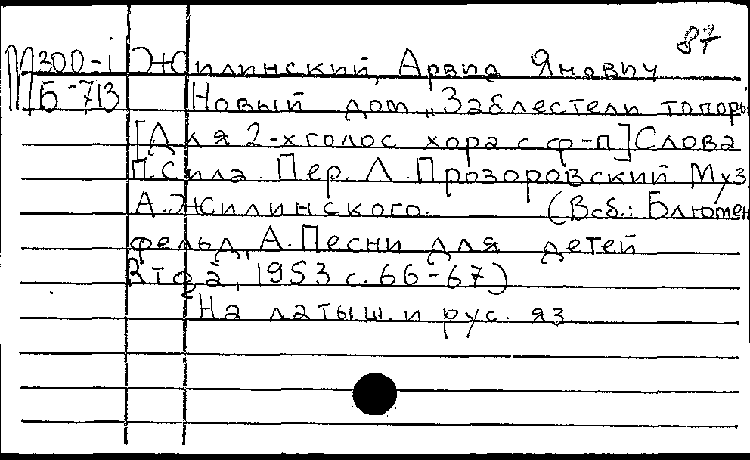 87
М300-i Жилинский, Арвид Янович
Б-713 Новый дом „Заблестели топоры
[Для 2-х голос хора с ф-п] Слова
П. Сила. Пер. Л. Прозоровский Муз
А. Жилинского. (В сб.: Блюмен
фельд, А. Песни для детей
Рига, 1953 с. 66-67)
На латыш. и рус. яз